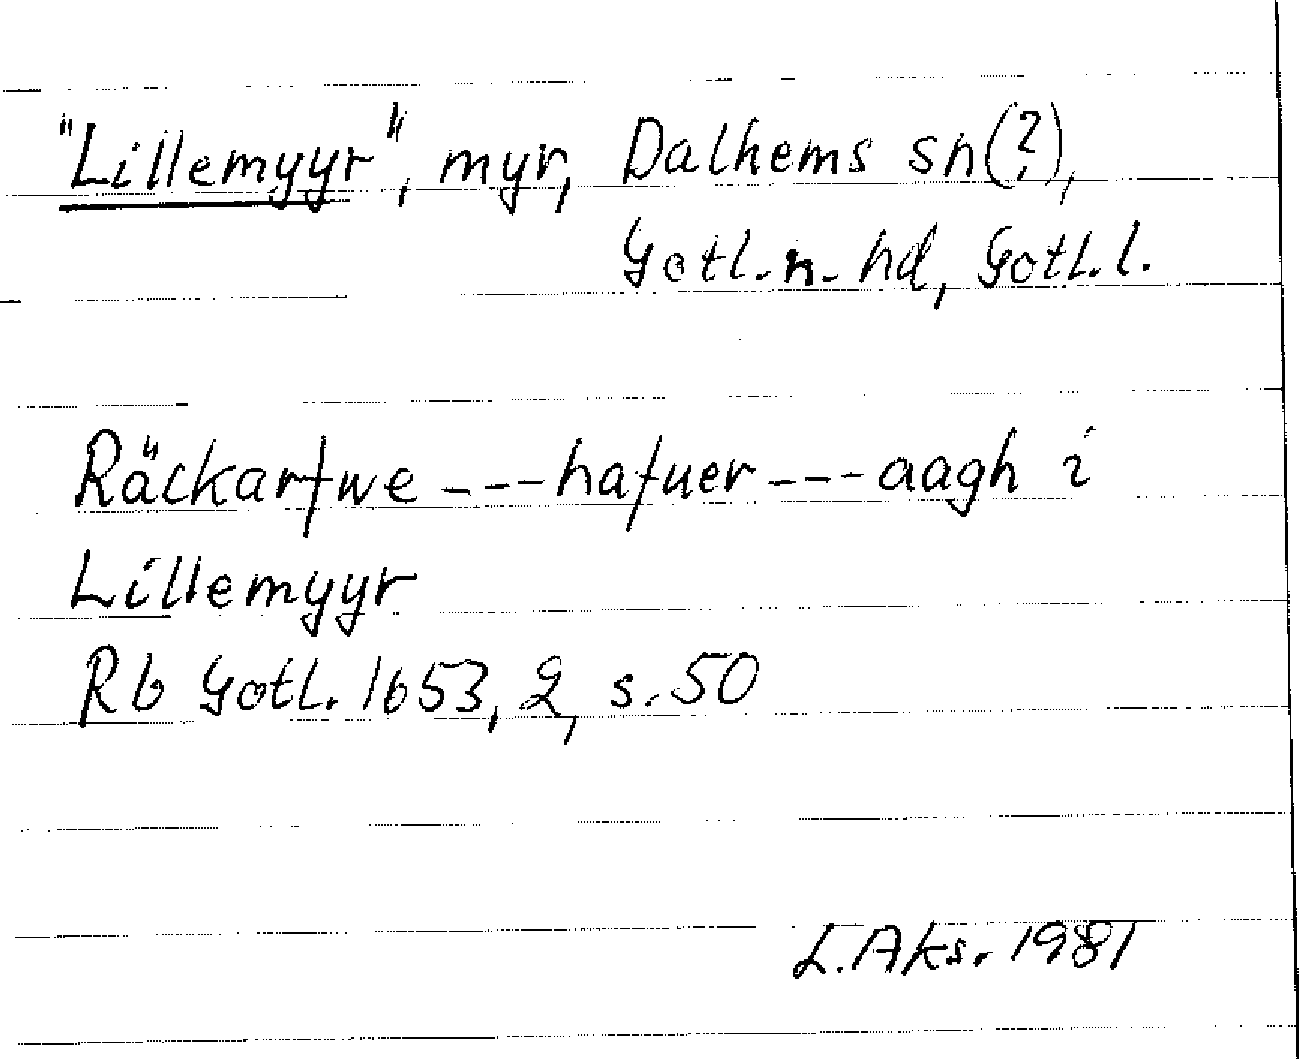 "Lillemyyr", myr, Dalhems sn(?),
Gotl. n. hd, Gotl. l.
Räckarfwe --- hafuer --- aagh i
Lillemyyr
Rb Gotl. 1653, 2, s. 50
L. Aks. 1981